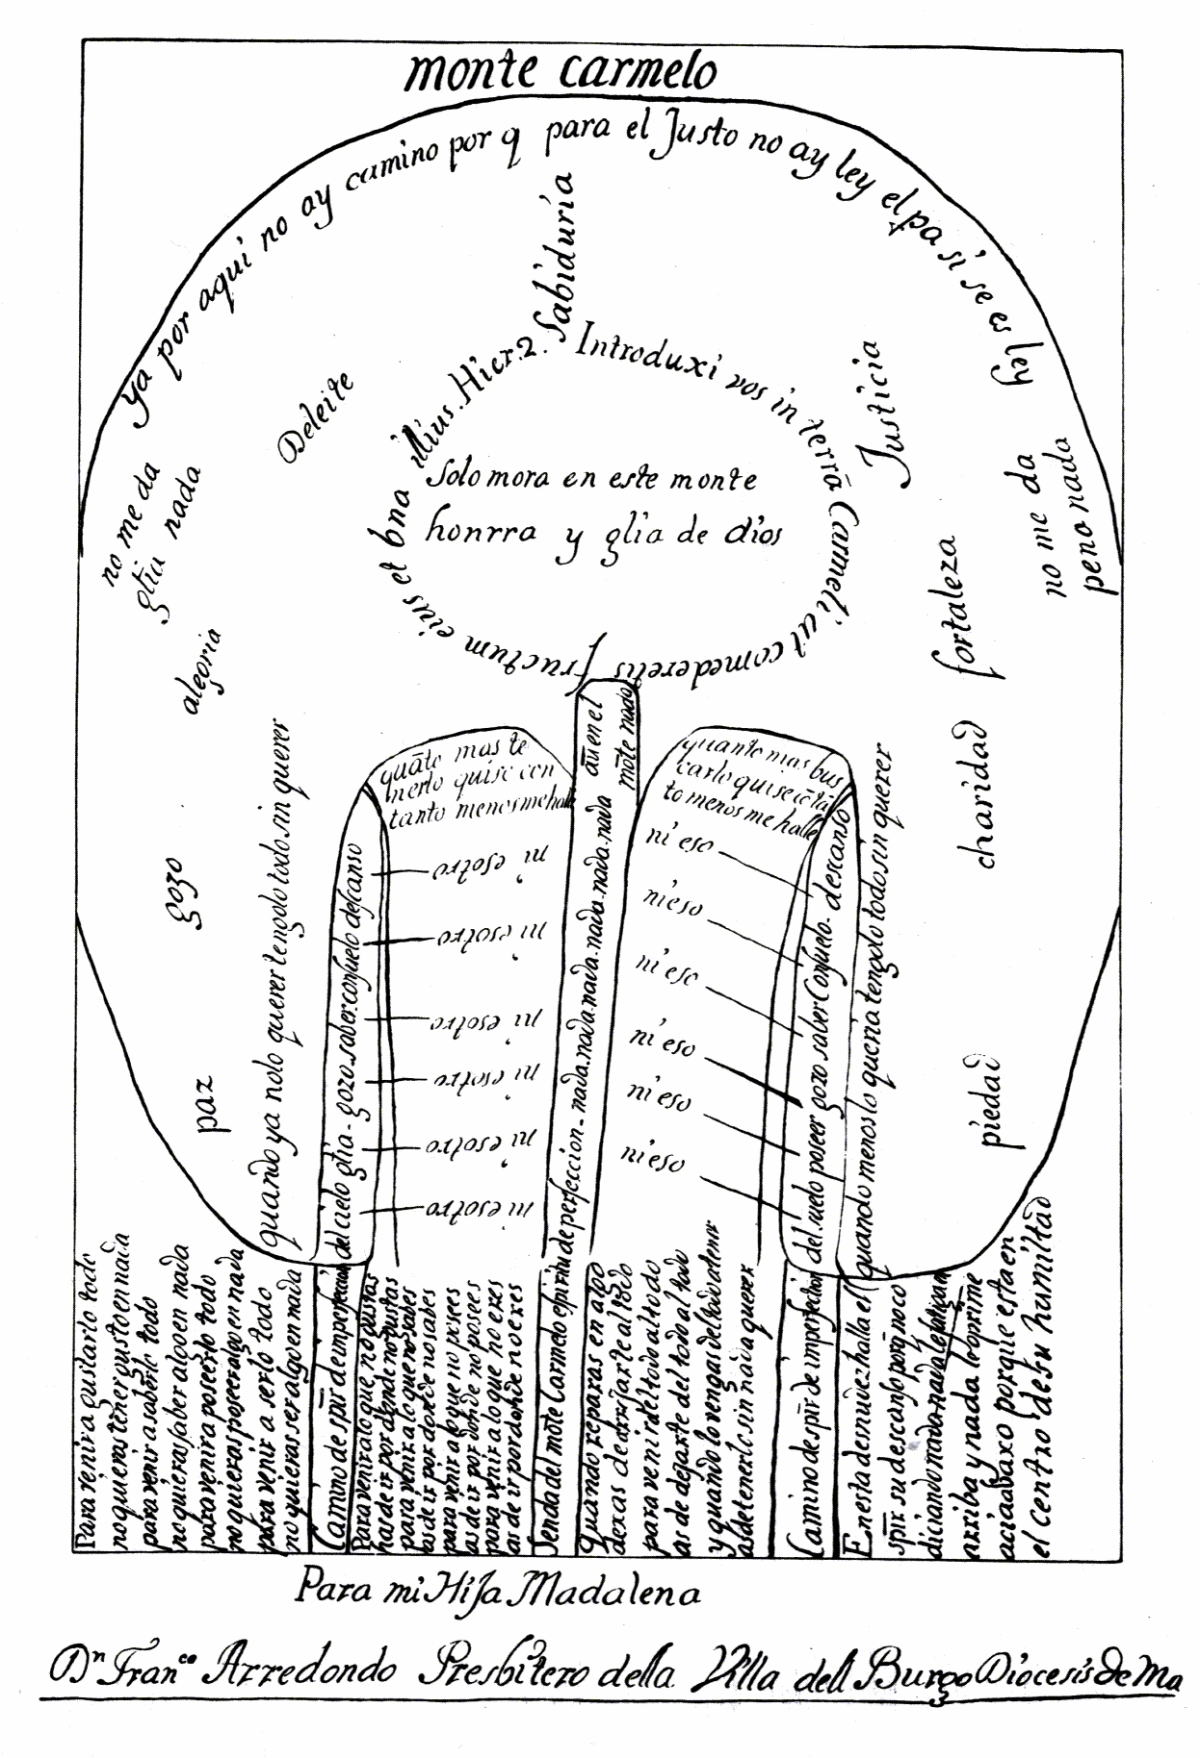 monte carmelo
ya por aqui no ay camino por q para el Justo no ay ley el pa si se es ley
Sabiduría
Deleite
Justicia
Introduxi vos in terrā Carmeli ut comederetis fructum eius et bna illius. Hier. 2.
Solo mora en este monte
honrra y glia de dios
no me da
glia nada
no me da
pena nada
alegria
fortaleza
gozo
charidad
paz
piedad
quando ya nolo querer tengolo todo sin querer
quāto mas te
nerlo quise con
tanto menos me halle
aū en el
mōte nada
quanto mas bus
carlo quise cō tā
to menos me halle
quando menos lo queria tengolo todo sin querer
ni esotro
ni esotro
ni esotro
ni esotro
ni esotro
ni esotro
ni eso
ni eso
ni eso
ni eso
ni eso
ni eso
Para venir a gustarlo todo
no quieras tener gusto en nada
para venir a saberlo todo
no quieras saber algo en nada
para venir a poseerlo todo
no quieras poseer algo en nada
para venir a serlo todo
no quieras ser algo en nada
Camino de spīr de imperfeccion del cielo glia - gozo. saber. consuelo descanso
Para venir a lo que no gustas
has de ir por donde no gustas
para venir a lo que no sabes
as de ir por donde no sabes
para venir a lo que no posees
as de ir por donde no posees
para venir a lo que no eres
as de ir por donde no eres
Senda del mōte Carmelo espiritu de perfeccion - nada. nada. nada. nada. nada. nada
Quando reparas en algo
dexas de arrojarte al todo
para venir del todo al todo
as de dejarte del todo al todo
y quando lo vengas del todo a tener
as de tenerlo sin nada querer
Camino de spīr de imperfection del suelo poseer gozo saber Consuelo. descanso
En esta desnudez halla el
spīr su descanso porq no co
diciando nada nada le fatiga
arriba y nada lo oprime
acia abaxo porque esta en
el centro de su humiltad
Para mi Hija Madalena
Dn Franco Arredondo Presbitero della Villa dell Burgo Diocesis de Ma